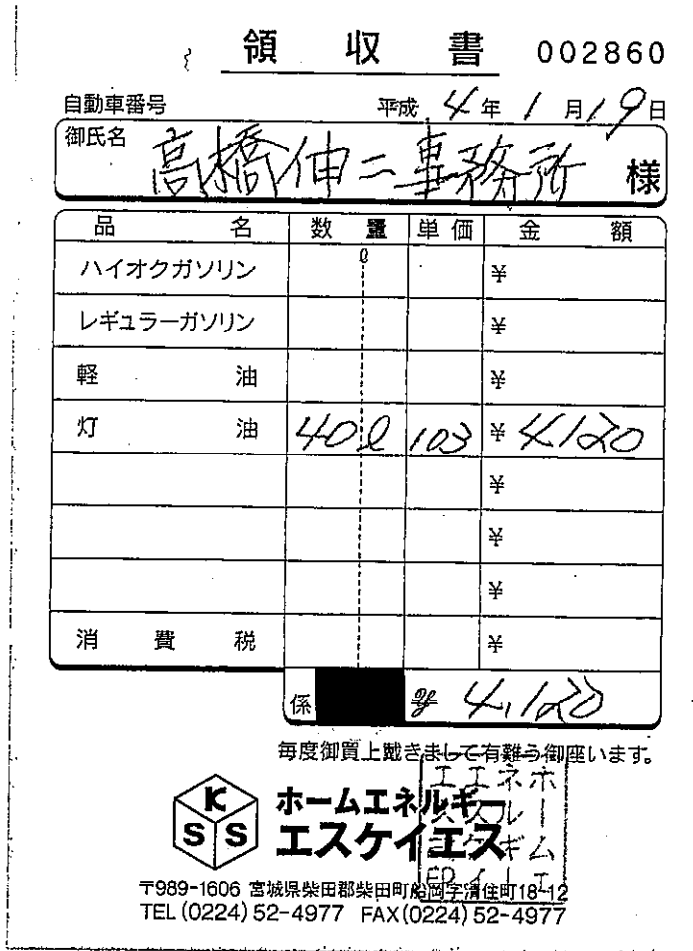 領収書 002860
自動車番号 平成 4年 1月19日
御氏名 高橋伸二事務所 様
品名 数量 単価 金額
ハイオクガソリン ℓ ¥
レギュラーガソリン ¥
軽油 ¥
灯油 40ℓ 103 ¥4120
¥
¥
¥
消費税 ¥
係 計 4,120
毎度御買上戴きまして有難う御座います。
KSS
ホームエネルギー
エスケイエス
〒989-1606 宮城県柴田郡柴田町船岡字清住町18-12
TEL(0224)52-4977 FAX(0224)52-4977